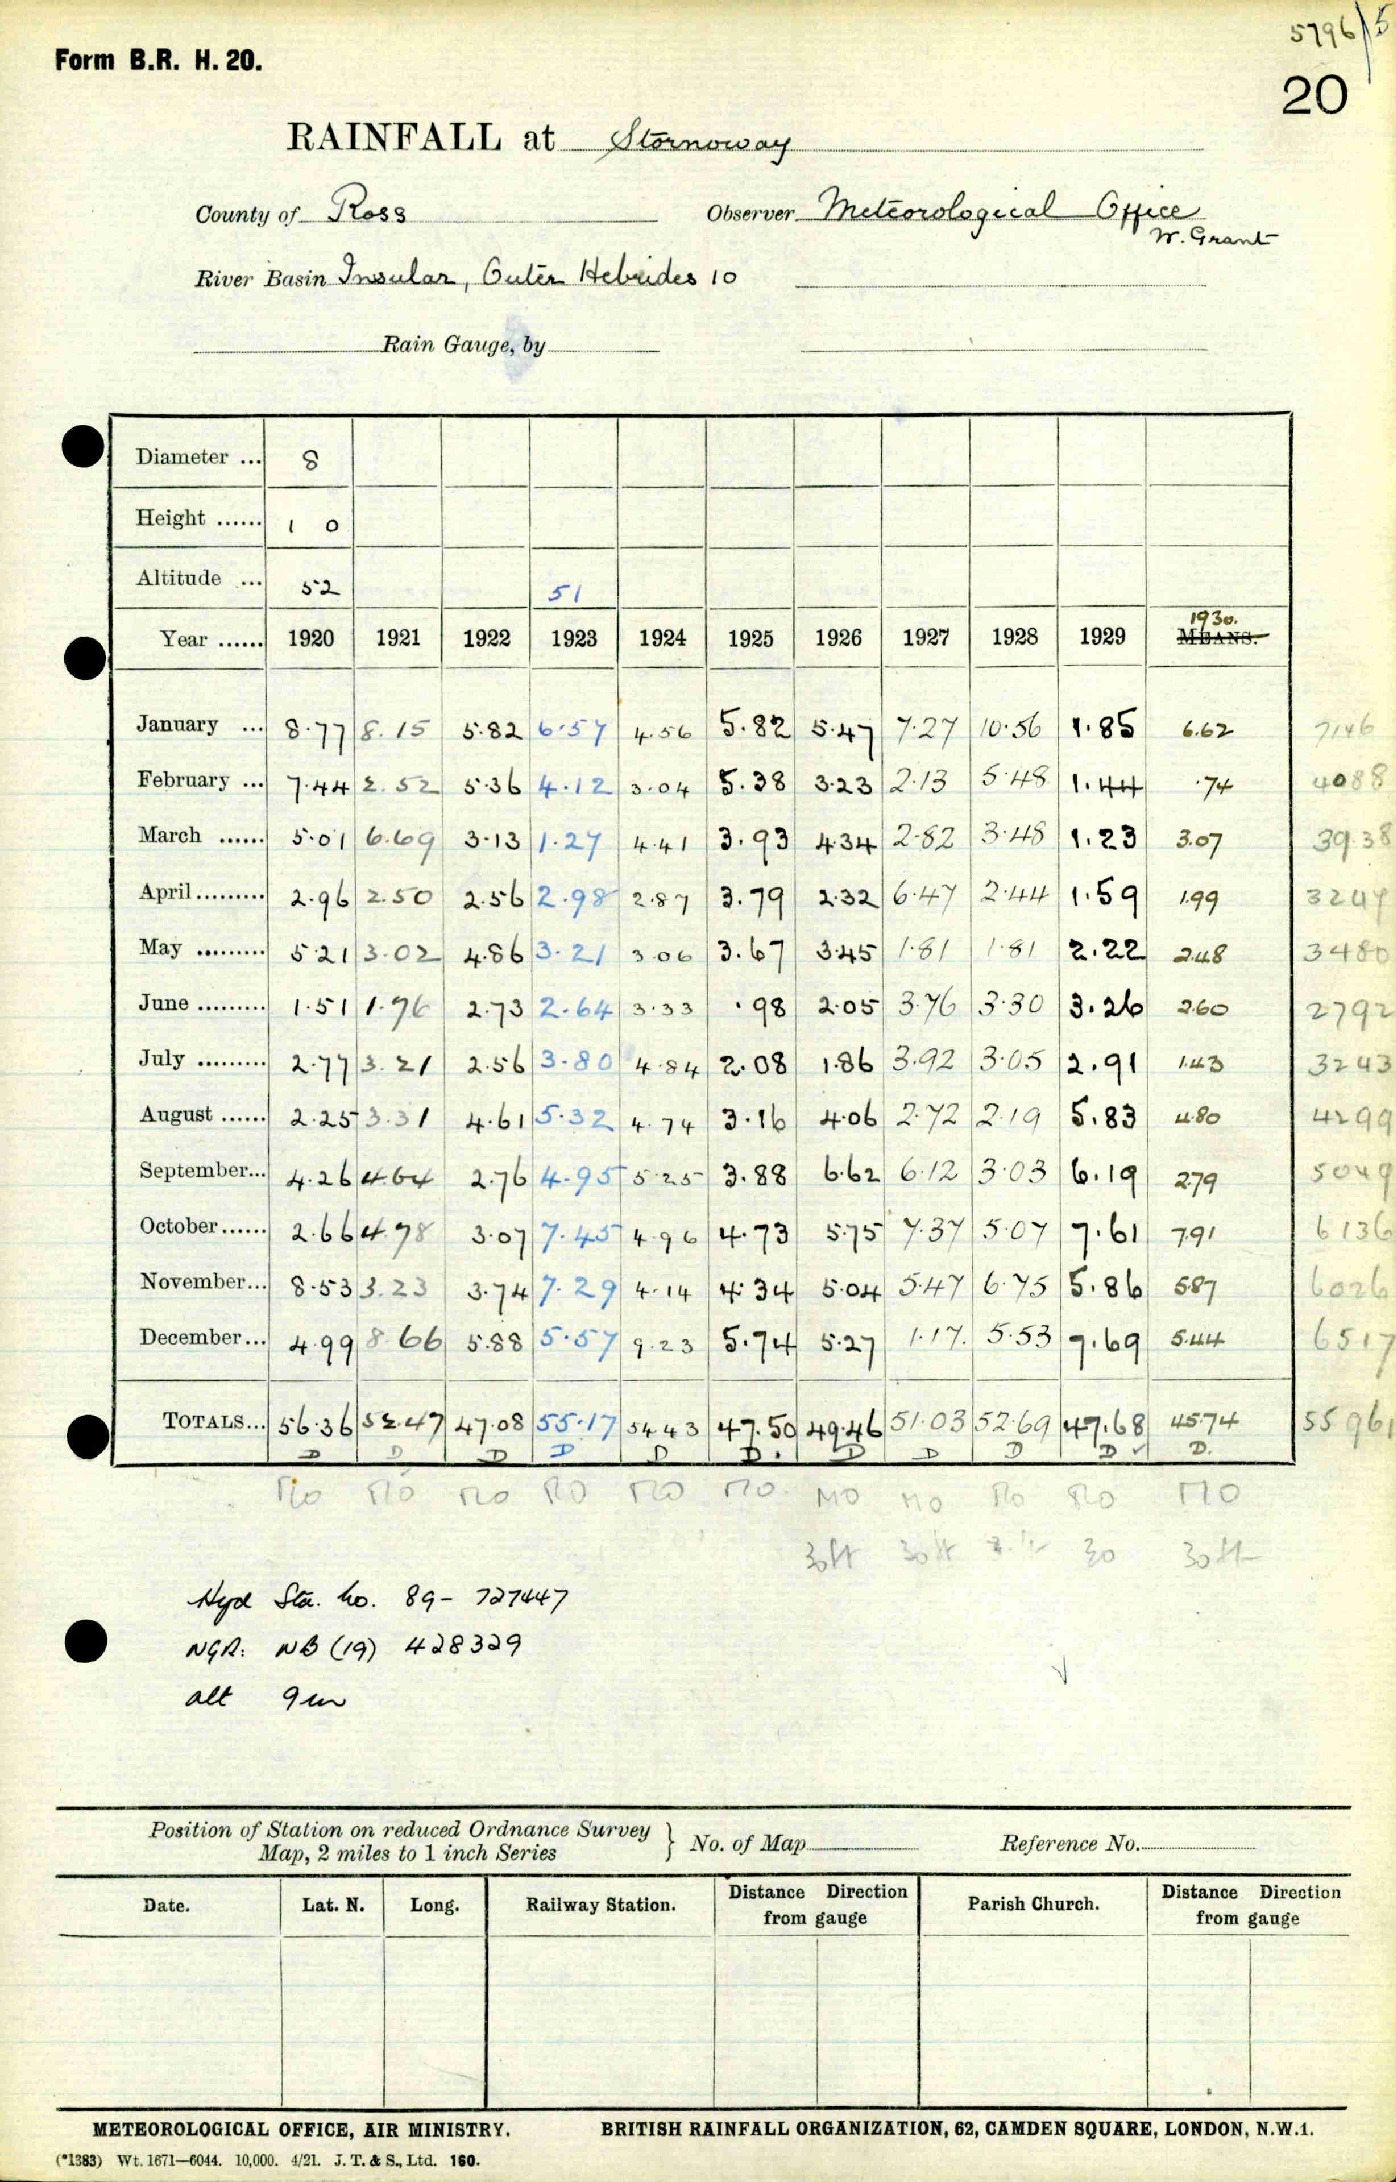 5796/5
Form B.R. H. 20.
20
RAINFALL at Stornoway
County of Ross Observer Meteorological Office
W. Grant
River Basin Insular, Outer Hebrides 10
Rain Gauge, by
Diameter ... 8
Height ...... 1 0
Altitude ... 52 51
1930.
Year ...... 1920 1921 1922 1923 1924 1925 1926 1927 1928 1929 MEANS.
January ... 8.77 8.15 5.82 6.57 4.56 5.82 5.47 7.27 10.56 1.85 6.62 7146
February ... 7.44 2.52 5.36 4.12 3.04 5.38 3.23 2.13 5.48 1.44 .74 4088
March ...... 5.01 6.69 3.13 1.27 4.41 3.93 4.34 2.82 3.48 1.23 3.07 39.38
April ......... 2.96 2.50 2.56 2.98 2.87 3.79 2.32 6.47 2.44 1.59 1.99 3247
May ......... 5.21 3.02 4.86 3.21 3.06 3.67 3.45 1.81 1.81 2.22 2.48 3480
June ......... 1.51 1.96 2.73 2.64 3.33 .98 2.05 3.76 3.30 3.26 2.60 2792
July ......... 2.77 3.21 2.56 3.80 4.84 2.08 1.86 3.92 3.05 2.91 1.43 3243
August ...... 2.25 3.31 4.61 5.32 4.74 3.16 4.06 2.72 2.19 5.83 4.80 4299
September... 4.26 4.64 2.76 4.95 5.25 3.88 6.62 6.12 3.03 6.19 2.79 5049
October...... 2.66 4.78 3.07 7.45 4.96 4.73 5.75 7.37 5.07 7.61 7.91 6136
November... 8.53 3.23 3.74 7.29 4.14 4.34 5.04 5.47 6.75 5.86 5.87 6026
December... 4.99 8.66 5.88 5.57 9.23 5.74 5.27 1.17. 5.53 7.69 5.44 6517
TOTALS... 56.36 52.47 47.08 55.17 54.43 47.50 49.46 51.03 52.69 47.68 45.74 55961
D D D D D D. D D D D ✓ D.
MO MO MO MO MO MO MO MO MO MO MO
30ft 30ft 30 30ft
Hyd Sta. No. 89- 727447
NGR: NB (19) 428329
alt 9m
✓
Position of Station on reduced Ordnance Survey
Map, 2 miles to 1 inch Series } No. of Map Reference No.
Date. Lat. N. Long. Railway Station. Distance Direction from gauge Parish Church. Distance Direction from gauge
METEOROLOGICAL OFFICE, AIR MINISTRY. BRITISH RAINFALL ORGANIZATION, 62, CAMDEN SQUARE, LONDON, N.W.1.
(*1383) Wt. 1671—6044. 10,000. 4/21. J. T. & S., Ltd. 160.